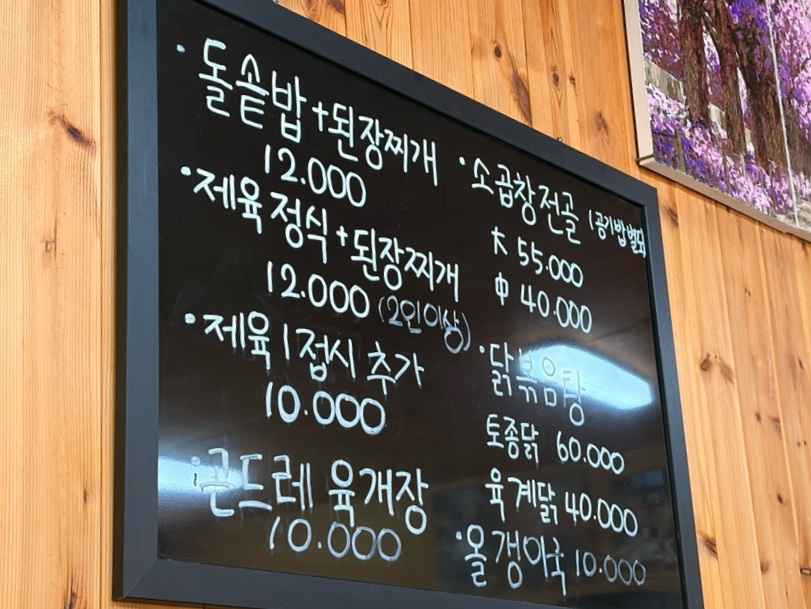 · 돌솥밥+된장찌개
12.000
· 제육정식+된장찌개
12.000 (2인이상)
· 제육 1접시 추가
10.000
· 곤드레 육개장
10.000
· 소곱창전골 (공기밥별도)
大 55.000
中 40.000
· 닭볶음탕
토종닭 60.000
육계닭 40.000
· 올갱이국 10.000